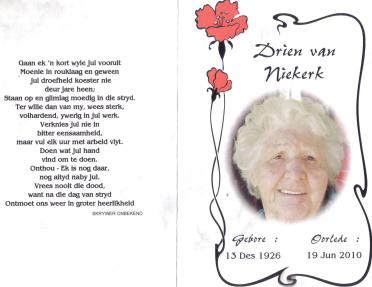 Gaan ek 'n kort wyle jul vooruit
Moenie in rouklaag en geween
jul droefheid koester nie
deur jare heen;
Staan op en glimlag moedig in die stryd.
Ter wille dan van my, wees sterk,
volhardend, ywerig in jul werk.
Verknies jul nie in
bitter eensaamheid,
maar vul elk uur met arbeid vlyt.
Doen wat jul hand
vind om te doen.
Onthou - Ek is nog daar,
nog altyd naby jul.
Vrees nooit die dood,
want na die dag van stryd
Ontmoet ons weer in groter heerlikheid
SKRYWER ONBEKEND
Drien van
Niekerk
Gebore :
Oorlede :
13 Des 1926
19 Jun 2010